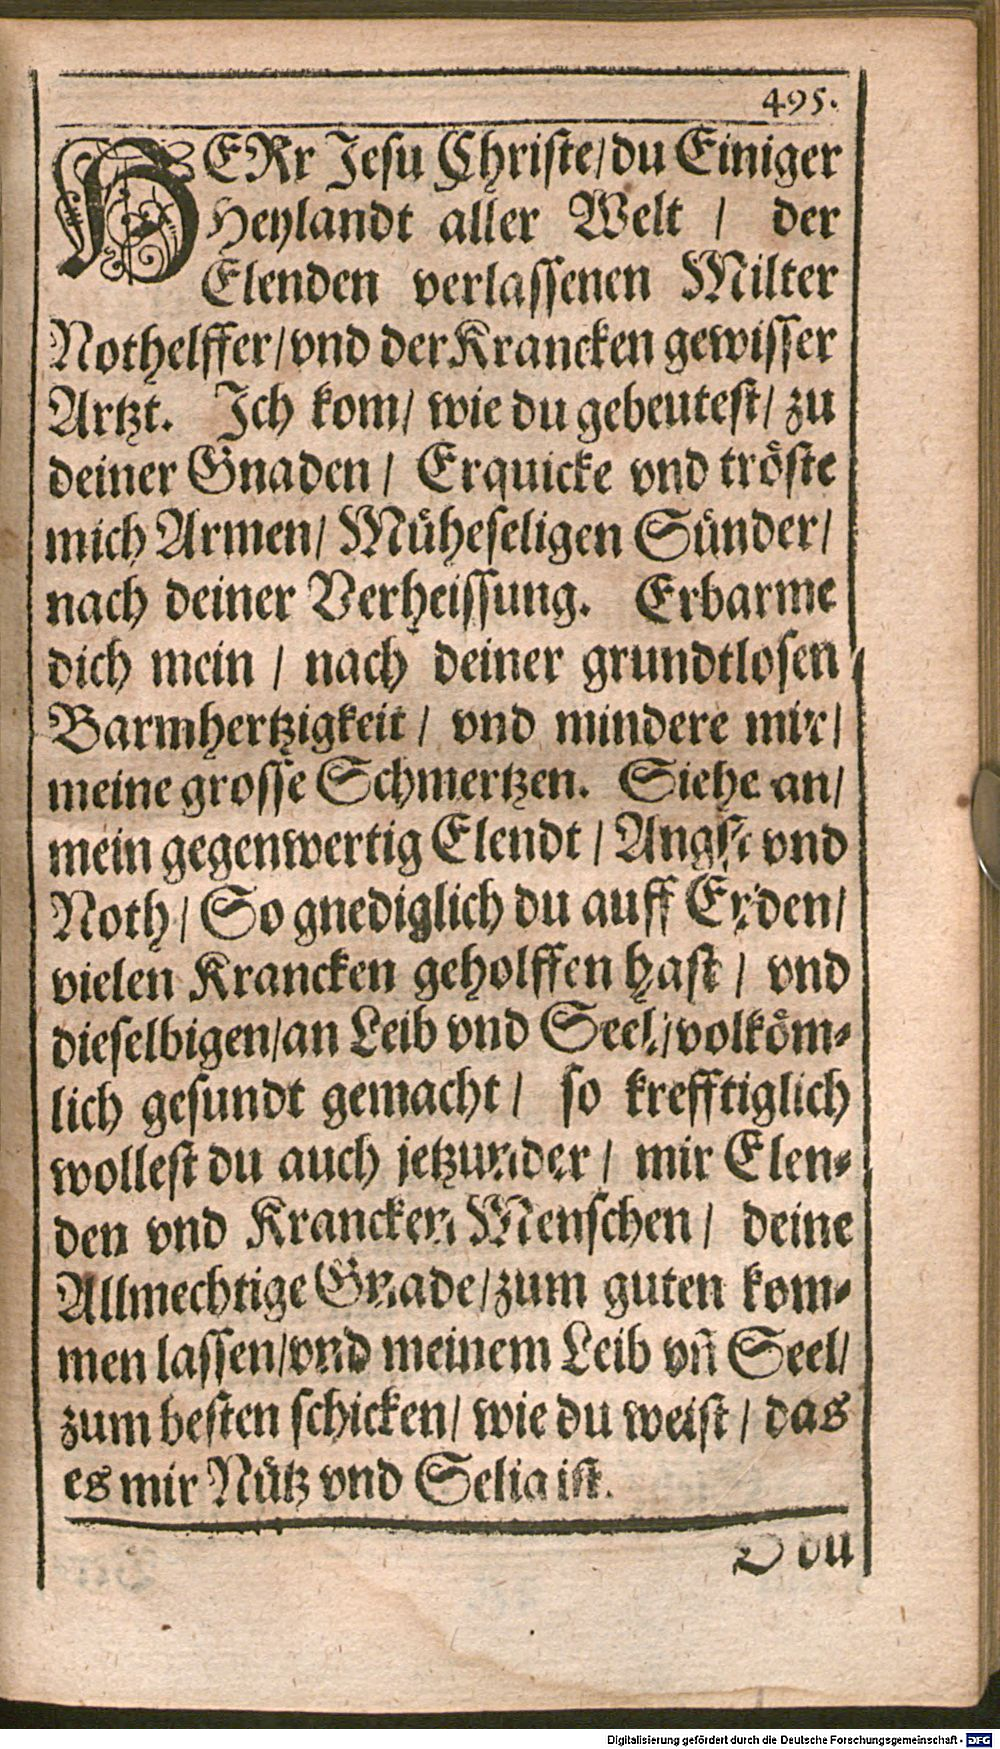 495.
HERr Jesu Christe/du Einiger
Heylandt aller Welt / der
Elenden verlassenen Milter
Nothelffer/vnd der Krancken gewisser
Artzt. Ich kom/ wie du gebeutest/ zu
deiner Gnaden / Erquicke vnd tröste
mich Armen/ Müheseligen Sünder/
nach deiner Verheissung. Erbarme
dich mein / nach deiner grundtlosen
Barmhertzigkeit / vnd mindere mir/
meine grosse Schmertzen. Siehe an/
mein gegenwertig Elendt / Angst vnd
Noth/ So gnediglich du auff Erden/
vielen Krancken geholffen hast / vnd
dieselbigen/an Leib vnd Seel/volköm-
lich gesundt gemacht / so krefftiglich
wollest du auch jetzunder / mir Elen-
den vnd Krancken Menschen / deine
Allmechtige Gnade/zum guten kom-
men lassen/vnd meinem Leib vn̄ Seel/
zum besten schicken/ wie du weist / das
es mir Nütz vnd Selig ist.
O du
Digitalisierung gefördert durch die Deutsche Forschungsgemeinschaft - DFG